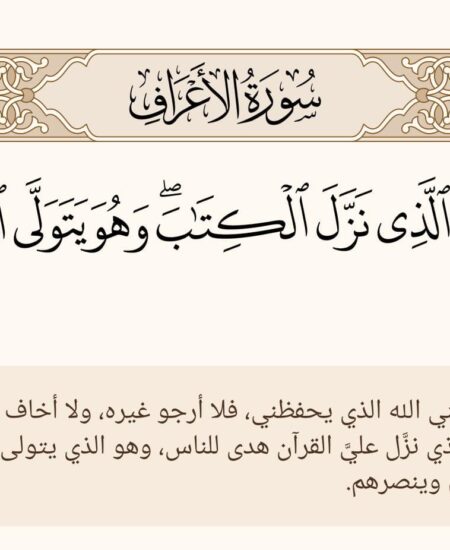 سُورَةُ الأَعْرَافِ
ٱلَّذِى نَزَّلَ ٱلْكِتَـٰبَ ۖ وَهُوَ يَتَوَلَّى
الله الذي يحفظني، فلا أرجو غيره، ولا أخاف
نزَّل عليَّ القرآن هدى للناس، وهو الذي يتولى
وينصرهم.